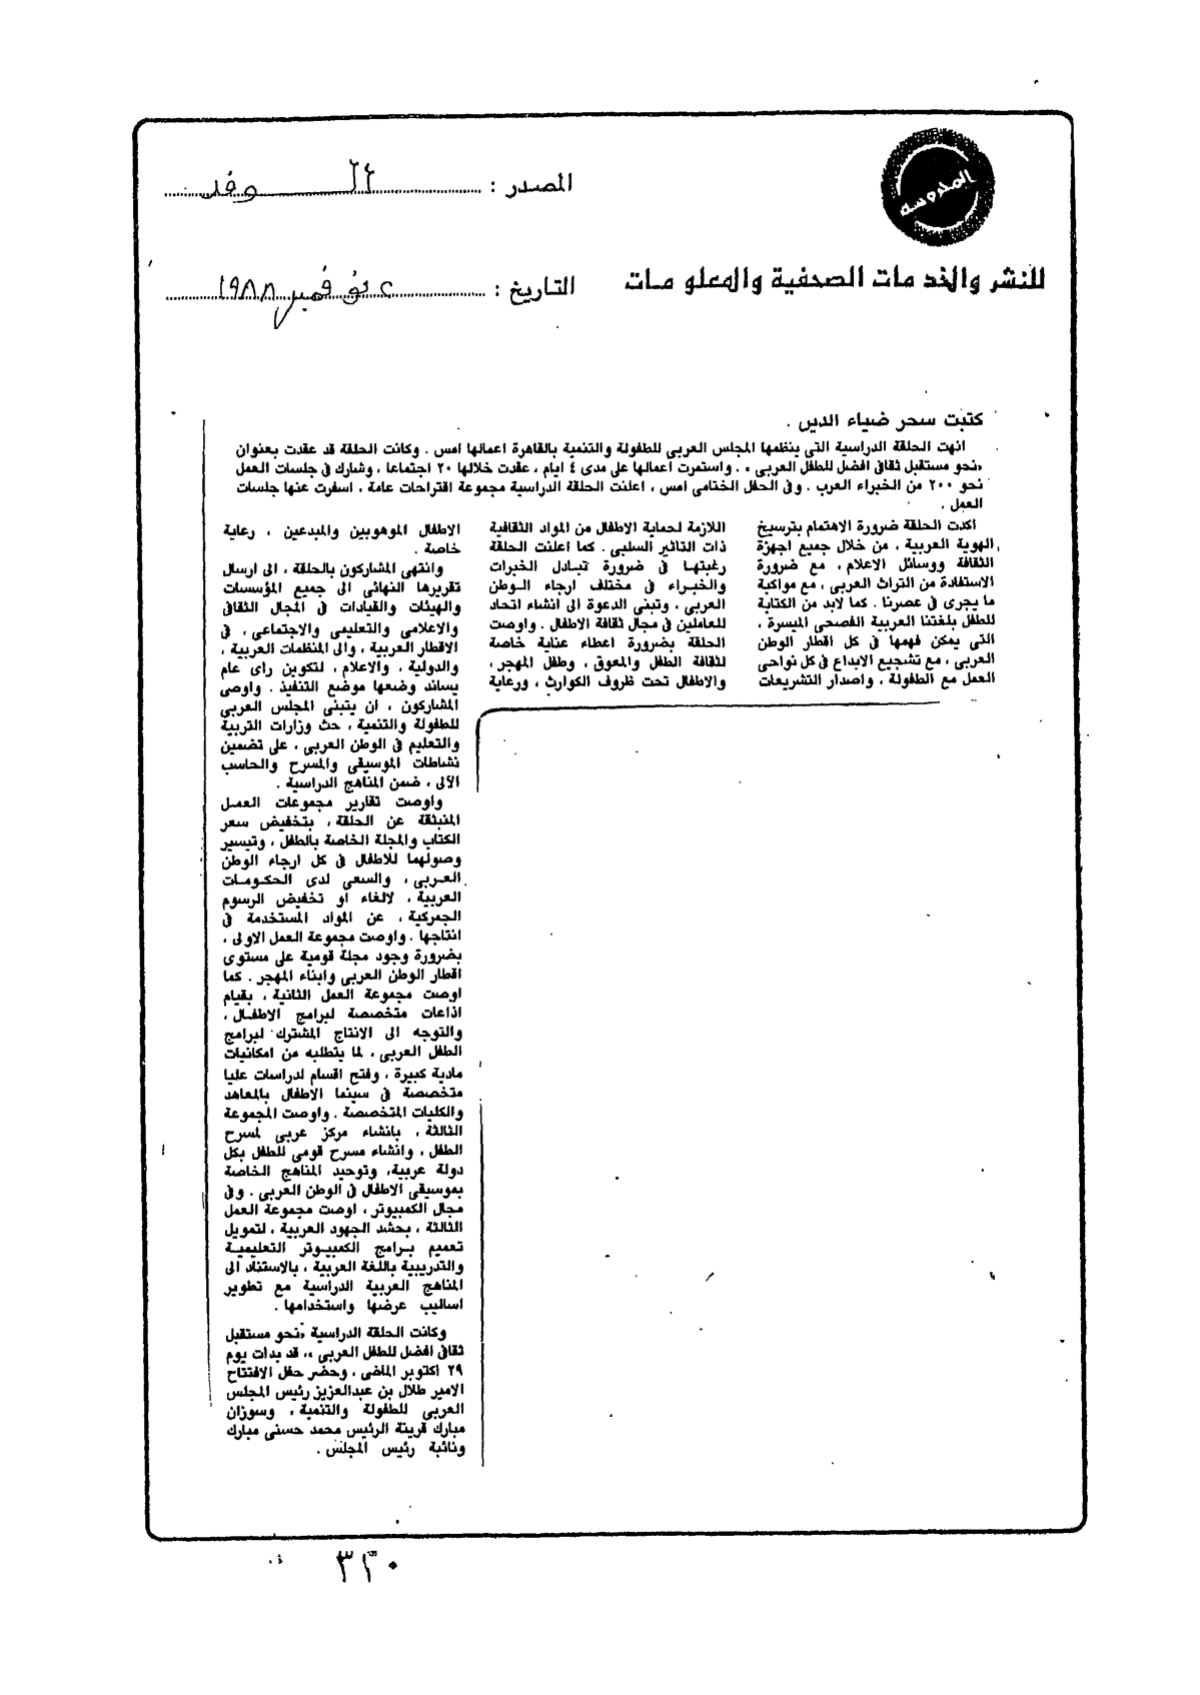 المحروسة
المصدر : الوفد
للنشر والخدمات الصحفية والمعلومات
التاريخ : ٢ نوفمبر ١٩٨٨
كتبت سحر ضياء الدين .
انهت الحلقة الدراسية التى ينظمها المجلس العربى للطفولة والتنمية بالقاهرة اعمالها امس . وكانت الحلقة قد عقدت بعنوان
«نحو مستقبل ثقافى افضل للطفل العربى» . واستمرت اعمالها على مدى ٤ ايام ، عقدت خلالها ٢٠ اجتماعا ، وشارك فى جلسات العمل
نحو ٢٠٠ من الخبراء العرب . وفى الحفل الختامى امس ، اعلنت الحلقة الدراسية مجموعة اقتراحات عامة ، اسفرت عنها جلسات
العمل .
اكدت الحلقة ضرورة الاهتمام بترسيخ
الهوية العربية ، من خلال جميع اجهزة
الثقافة ووسائل الاعلام ، مع ضرورة
الاستفادة من التراث العربى ، مع مواكبة
ما يجرى فى عصرنا . كما لابد من الكتابة
للطفل بلغتنا العربية الفصحى الميسرة ،
التى يمكن فهمها فى كل اقطار الوطن
العربى ، مع تشجيع الابداع فى كل نواحى
العمل مع الطفولة ، واصدار التشريعات
اللازمة لحماية الاطفال من المواد الثقافية
ذات التاثير السلبى . كما اعلنت الحلقة
رغبتها فى ضرورة تبادل الخبرات
والخبراء فى مختلف ارجاء الوطن
العربى ، وتبنى الدعوة الى انشاء اتحاد
للعاملين فى مجال ثقافة الاطفال . واوصت
الحلقة بضرورة اعطاء عناية خاصة
لثقافة الطفل والمعوق ، وطفل المهجر ،
والاطفال تحت ظروف الكوارث ، ورعاية
الاطفال الموهوبين والمبدعين ، رعاية
خاصة .
وانتهى المشاركون بالحلقة ، الى ارسال
تقريرها النهائى الى جميع المؤسسات
والهيئات والقيادات فى المجال الثقافى
والاعلامى والتعليمى والاجتماعى ، فى
الاقطار العربية ، والى المنظمات العربية ،
والدولية ، والاعلام ، لتكوين راى عام
يساند وضعها موضع التنفيذ . واوصى
المشاركون ، ان يتبنى المجلس العربى
للطفولة والتنمية ، حث وزارات التربية
والتعليم فى الوطن العربى ، على تضمين
نشاطات الموسيقى والمسرح والحاسب
الآلى ، ضمن المناهج الدراسية .
واوصت تقارير مجموعات العمل
المنبثقة عن الحلقة ، بتخفيض سعر
الكتاب والمجلة الخاصة بالطفل ، وتيسير
وصولهما للاطفال فى كل ارجاء الوطن
العربى ، والسعى لدى الحكومات
العربية ، لالغاء او تخفيض الرسوم
الجمركية ، عن المواد المستخدمة فى
انتاجها . واوصت مجموعة العمل الاولى ،
بضرورة وجود مجلة قومية على مستوى
اقطار الوطن العربى وابناء المهجر . كما
اوصت مجموعة العمل الثانية ، بقيام
اذاعات متخصصة لبرامج الاطفال ،
والتوجه الى الانتاج المشترك لبرامج
الطفل العربى ، لما يتطلبه من امكانيات
مادية كبيرة ، وفتح اقسام لدراسات عليا
متخصصة فى سينما الاطفال بالمعاهد
والكليات المتخصصة . واوصت المجموعة
الثالثة ، بانشاء مركز عربى لمسرح
الطفل ، وانشاء مسرح قومى للطفل بكل
دولة عربية، وتوحيد المناهج الخاصة
بموسيقى الاطفال فى الوطن العربى . وفى
مجال الكمبيوتر ، اوصت مجموعة العمل
الثالثة ، بحشد الجهود العربية ، لتمويل
تعميم برامج الكمبيوتر التعليمية
والتدريبية باللغة العربية ، بالاستناد الى
المناهج العربية الدراسية مع تطوير
اساليب عرضها واستخدامها .
وكانت الحلقة الدراسية «نحو مستقبل
ثقافى افضل للطفل العربى» ، قد بدات يوم
٢٩ اكتوبر الماضى ، وحضر حفل الافتتاح
الامير طلال بن عبدالعزيز رئيس المجلس
العربى للطفولة والتنمية ، وسوزان
مبارك قرينة الرئيس محمد حسنى مبارك
ونائبة رئيس المجلس .
٣٢٠